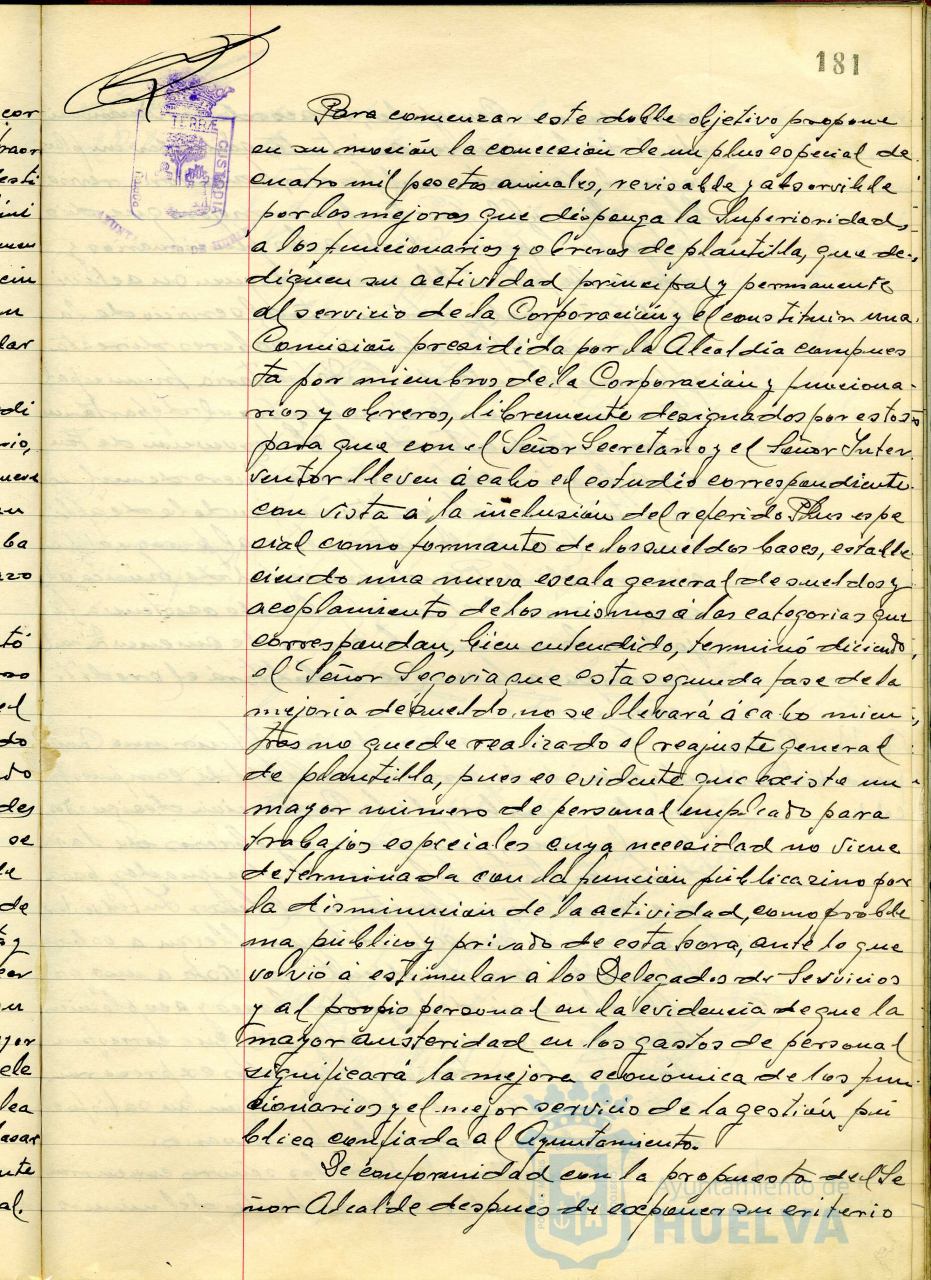 181
TERRÆ
CUSTODIA
Para comenzar este doble objetivo propone
en su moción la concesión de un plus especial de
cuatro mil pesetas anuales, revisable y absorvible
por las mejoras que disponga la Superioridad,
a los funcionarios y obreros de plantilla, que de-
diquen su actividad principal y permanente
al servicio de la Corporación y el constituir una
Comisión presidida por la Alcaldía compues
ta por miembros de la Corporación y funciona-
rios y obreros, libremente designados por estos
para que con el Señor Secretario y el Señor Inter
ventor lleven á cabo el estudio correspondiente
con vista á la inclusión del referido Plus espe
cial como formante de los sueldos bases, estable
ciendo una nueva escala general de sueldos y
acoplamiento de los mismos á las categorias que
correspondan, bien entendido, terminó diciendo,
el Señor Segovia que esta segunda fase de la
mejoria de sueldo no se llevará á cabo mien
tras no quede realizado el reajuste general
de plantilla, pues es evidente que existe un
mayor número de personal empleado para
trabajos especiales cuya necesidad no viene
determinada con la función pública sino por
la disminución de la actividad, como proble
ma público y privado de esta hora, ante lo que
volvió á estimular á los Delegados de Servicios
y al propio personal en la evidencia de que la
mayor austeridad en los gastos de personal
significará la mejora económica de los fun
cionarios y el mejor servicio de la gestión pú
blica confiada al Ayuntamiento.
De conformidad con la propuesta del Se
ñor Alcalde despues de exponer su criterio
Ayuntamiento de
HUELVA